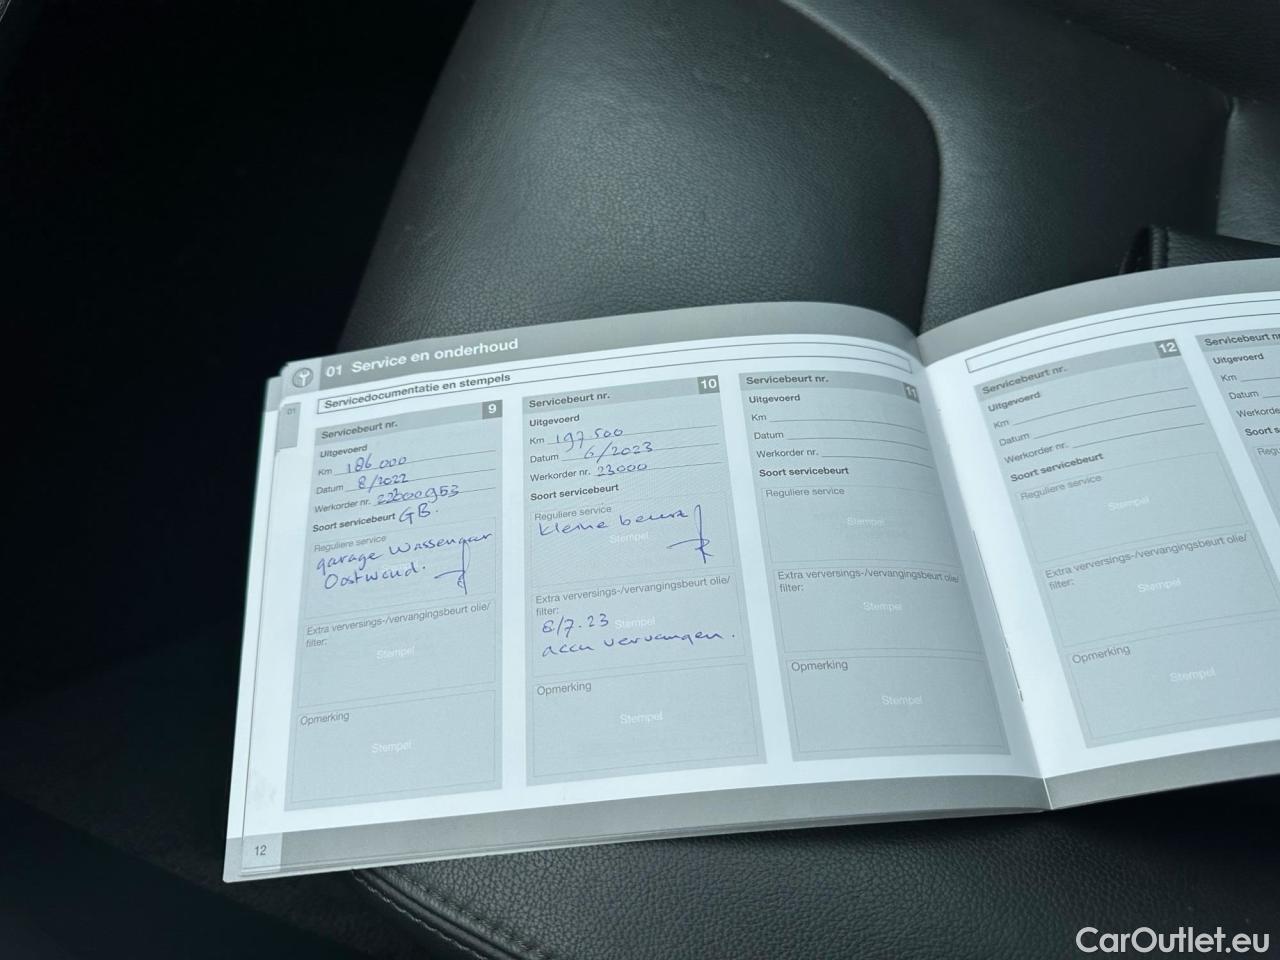 01 Service en onderhoud
Servicedocumentatie en stempels
01
Servicebeurt nr. 9
Uitgevoerd
Km 186.000
Datum 8/2022
Werkorder nr. 22600953
Soort servicebeurt GB.
Reguliere service
garage Wassenaar
Oostwoud.
Extra verversings-/vervangingsbeurt olie/
filter:
Stempel
Opmerking
Stempel
12
Servicebeurt nr. 10
Uitgevoerd
Km 197.500
Datum 6/2023
Werkorder nr. 23000
Soort servicebeurt
Reguliere service
kleine beurt
Stempel
Extra verversings-/vervangingsbeurt olie/
filter:
Stempel
6/7.23
accu vervangen.
Opmerking
Stempel
Servicebeurt nr. 11
Uitgevoerd
Km
Datum
Werkorder nr.
Soort servicebeurt
Reguliere service
Stempel
Extra verversings-/vervangingsbeurt olie/
filter:
Stempel
Opmerking
Stempel
Servicebeurt nr. 12
Uitgevoerd
Km
Datum
Werkorder nr.
Soort servicebeurt
Reguliere service
Stempel
Extra verversings-/vervangingsbeurt olie/
filter:
Stempel
Opmerking
Stempel
Servicebeurt nr.
Uitgevoerd
Km
Datum
CarOutlet.eu